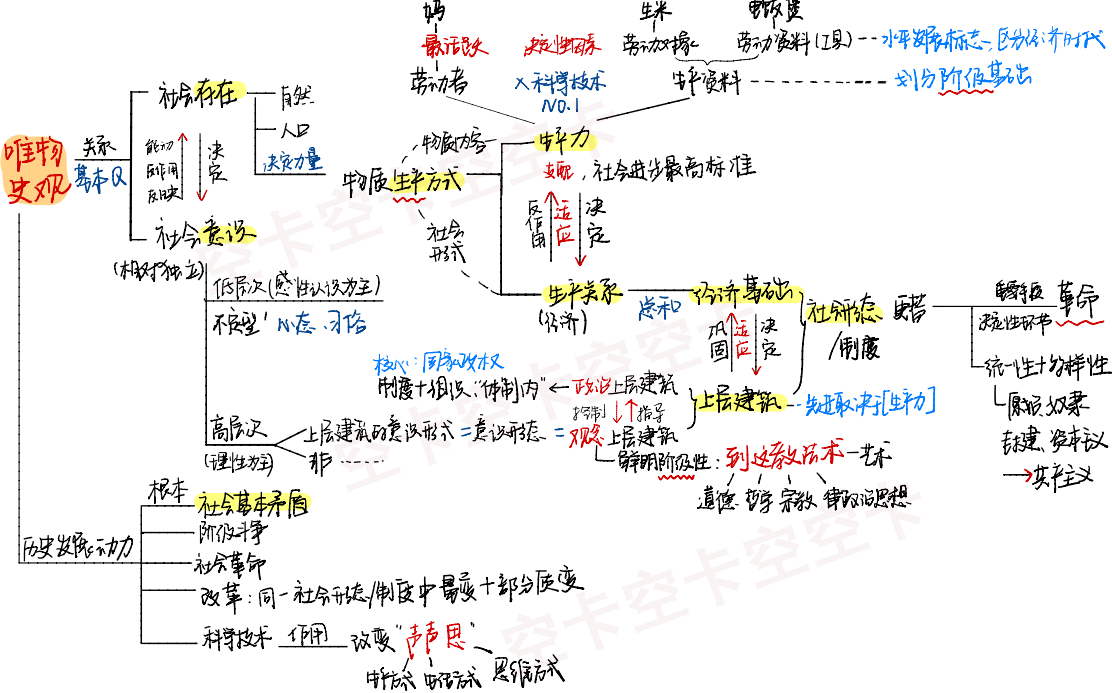 妈
生米
电饭煲
最活跃
决定性因素
劳动对象
劳动资料(工具)
水平发展标志、区分经济时代
劳动者
X科学技术
NO.1
生产资料
划分阶级基础
社会存在
自然
人口
决定力量
唯物
史观
关系
基本Q
能动
反作用
反映
决定
物质生产方式
物质内容
社会
形式
生产力
支配,社会进步最高标准
反作用
适应
决定
社会意识
(相对独立)
低层次(感性认识为主)
不定型:心态、习俗
生产关系
(经济)
总和
经济基础
巩固
适应
决定
社会形态
/制度
更替
重要手段
决定性环节
革命
统一性+多样性
原始 奴隶
封建、资本主义
→共产主义
核心:国家政权
制度+组织“体制内”←政治上层建筑
控制
指导
上层建筑
先进取决于[生产力]
高层次
(理性为主)
上层建筑的意识形式=意识形态=观念上层建筑
非……
鲜明阶级性:到这教法术—艺术
道德 哲学 宗教 律政治思想
历史发展动力
根本
社会基本矛盾
阶级斗争
社会革命
改革:同一社会形态/制度中量变+部分质变
科学技术
作用
改变“声声思”
生产方式
生活方式
思维方式
空卡空卡空空
空卡空卡空空
空卡空卡空空